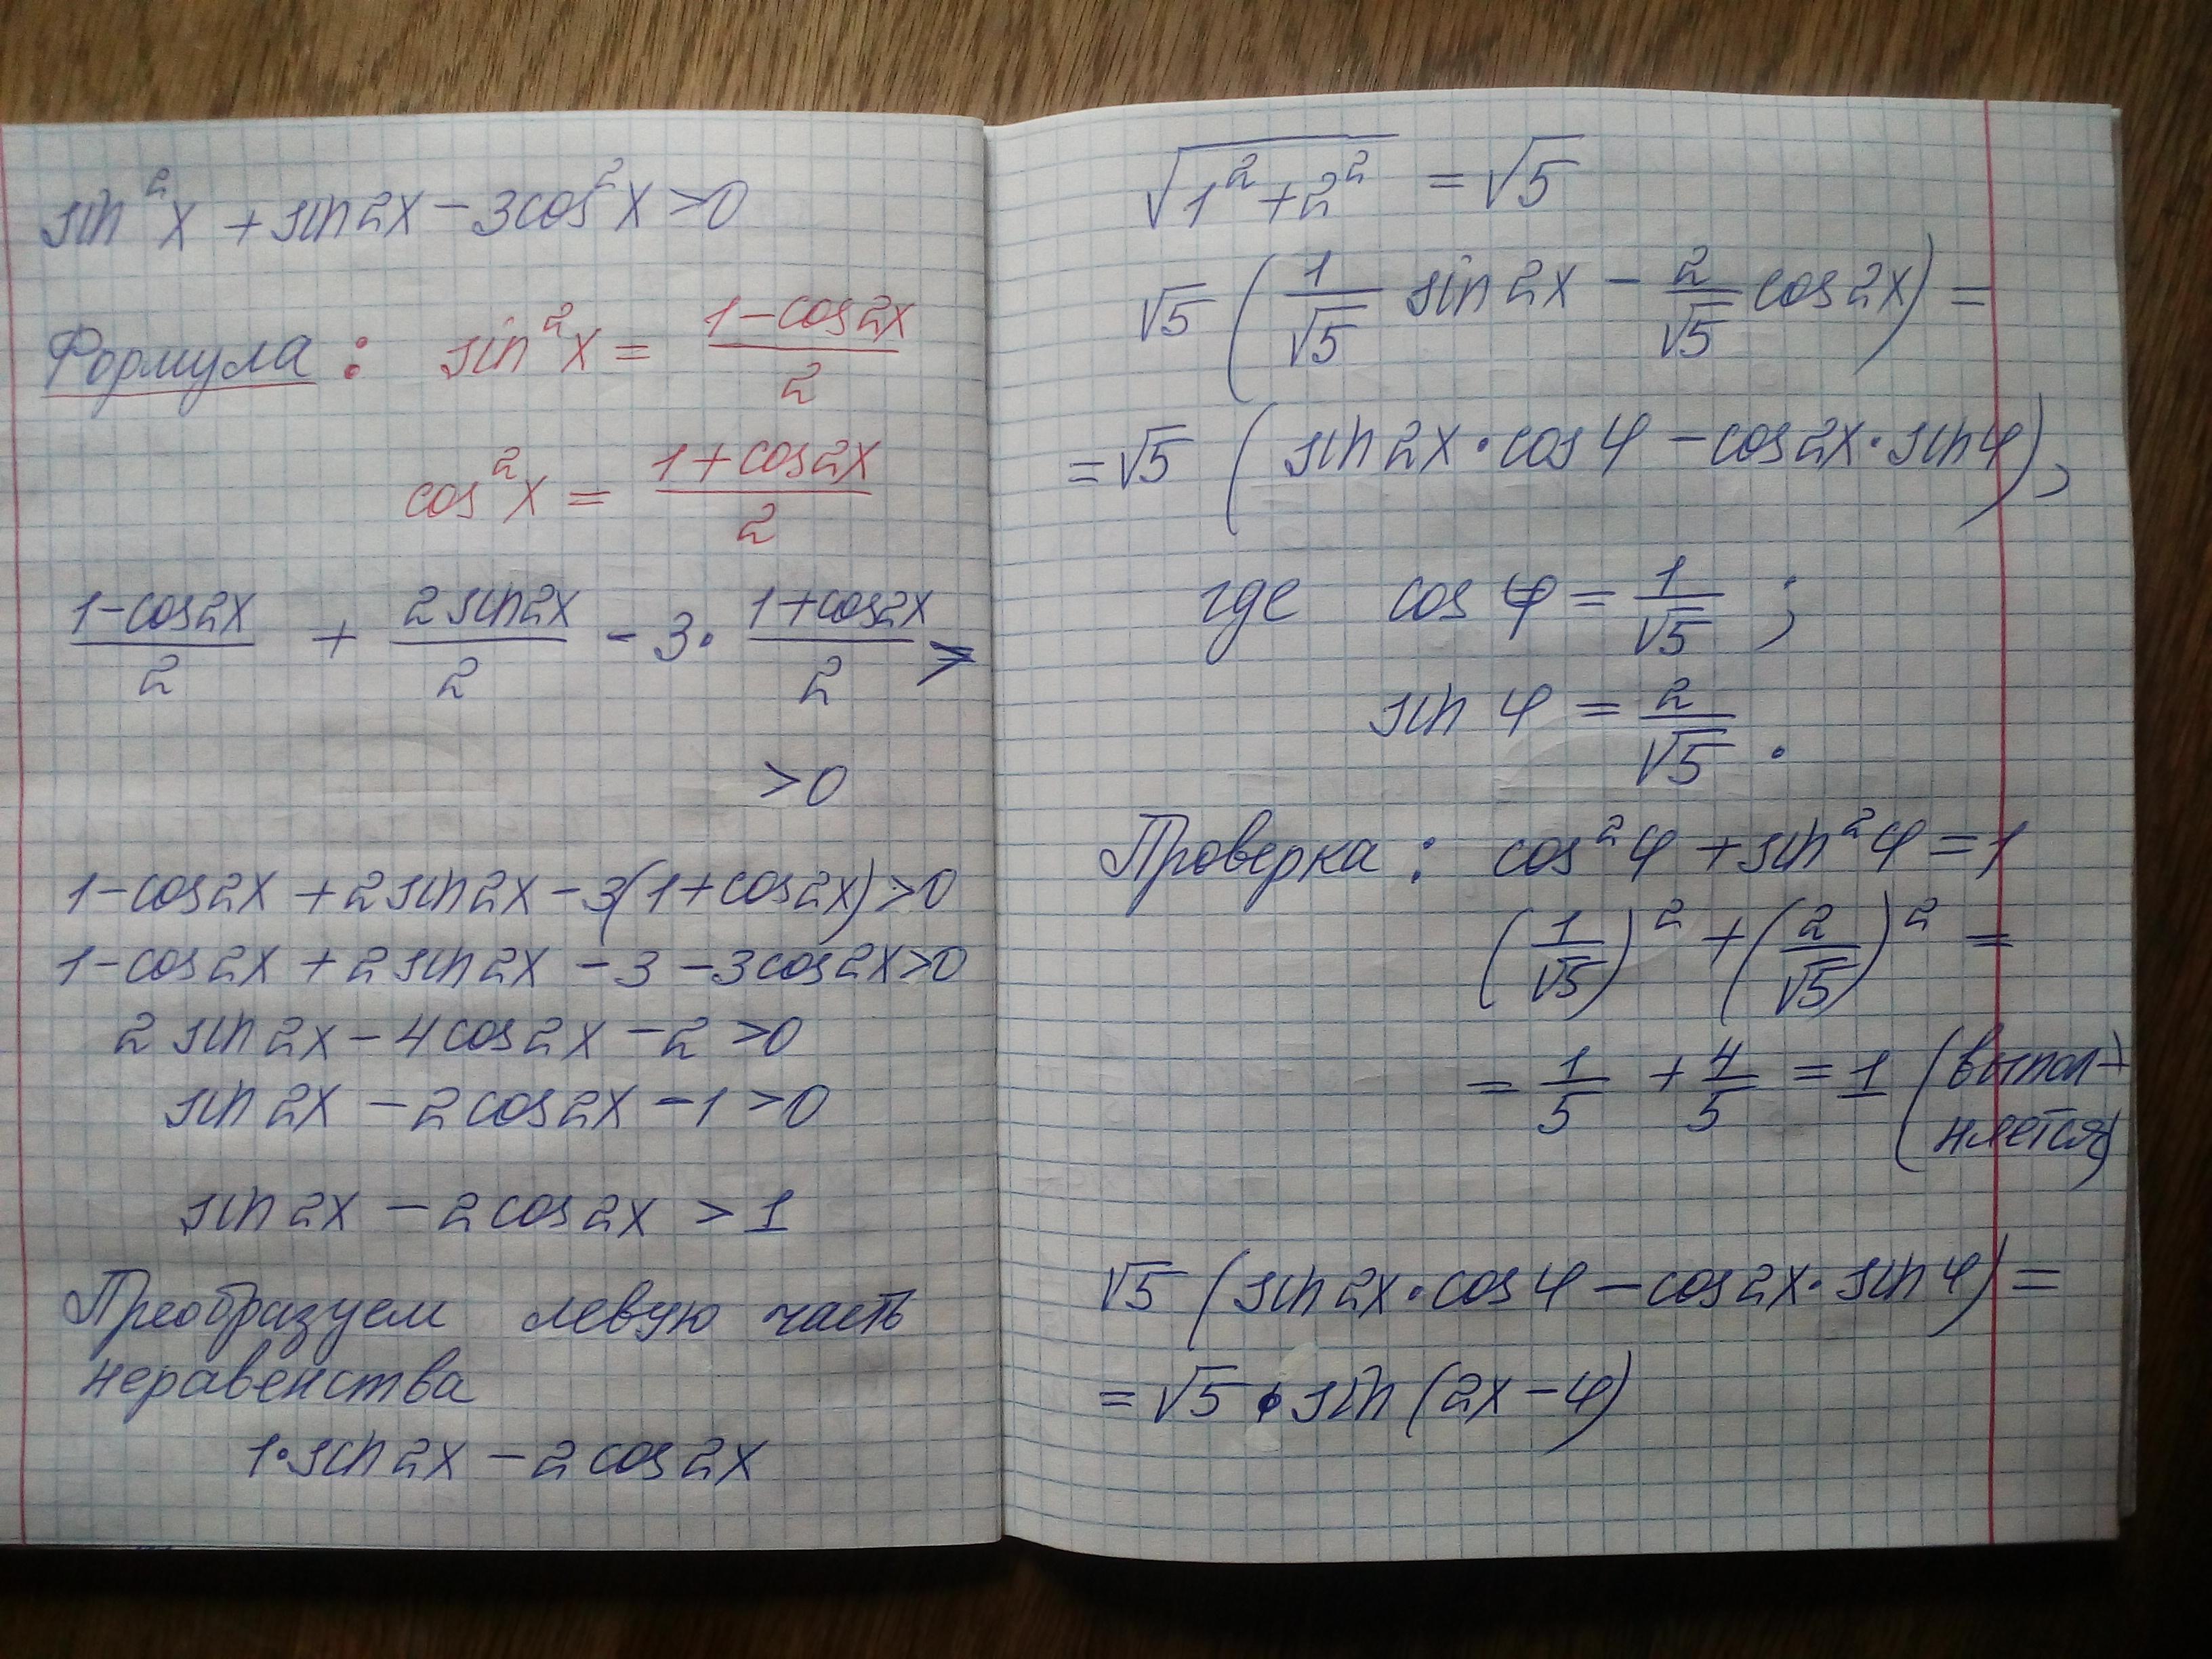 sin²x + sin2x - 3cos²x > 0
Формула: sin²x = (1-cos2x)/2
cos²x = (1+cos2x)/2
(1-cos2x)/2 + (2sin2x)/2 - 3·(1+cos2x)/2 >
>0
1-cos2x + 2sin2x - 3(1+cos2x) > 0
1-cos2x + 2sin2x - 3 - 3cos2x > 0
2sin2x - 4cos2x - 2 > 0
sin2x - 2cos2x - 1 > 0
sin2x - 2cos2x > 1
Преобразуем левую часть
неравенства
1·sin2x - 2cos2x
√(1²+2²) = √5
√5 (1/√5 sin2x - 2/√5 cos2x) =
= √5 (sin2x·cosφ - cos2x·sinφ),
где cosφ = 1/√5 ;
sinφ = 2/√5 .
Проверка: cos²φ + sin²φ = 1
(1/√5)² + (2/√5)² =
= 1/5 + 4/5 = 1 (выпол-
няется)
√5 (sin2x·cosφ - cos2x·sinφ) =
= √5 · sin(2x-φ)